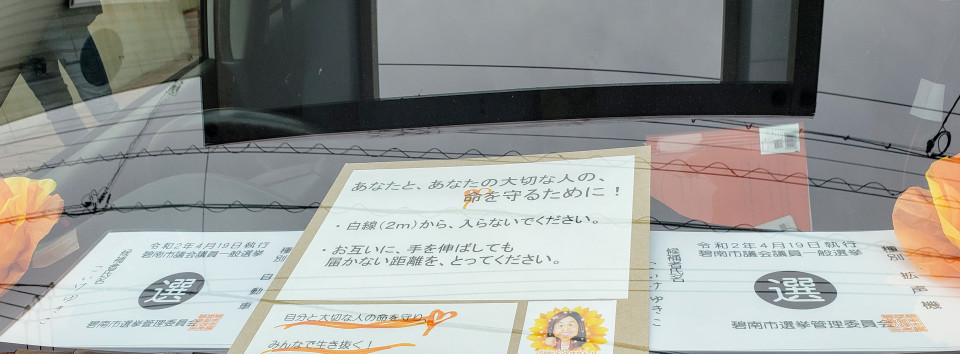 あなたと、あなたの大切な人の、
命を守るために！
・白線(2m)から、入らないでください。
・お互いに、手を伸ばしても
届かない距離を、とってください。
自分と大切な人の命を守り
みんなで生き抜く！
令和2年4月19日執行
碧南市議会議員一般選挙
選
種別 自動車
碧南市選挙管理委員会
令和2年4月19日執行
碧南市議会議員一般選挙
候補者氏名
こいけゆきこ
選
種別 拡声機
碧南市選挙管理委員会